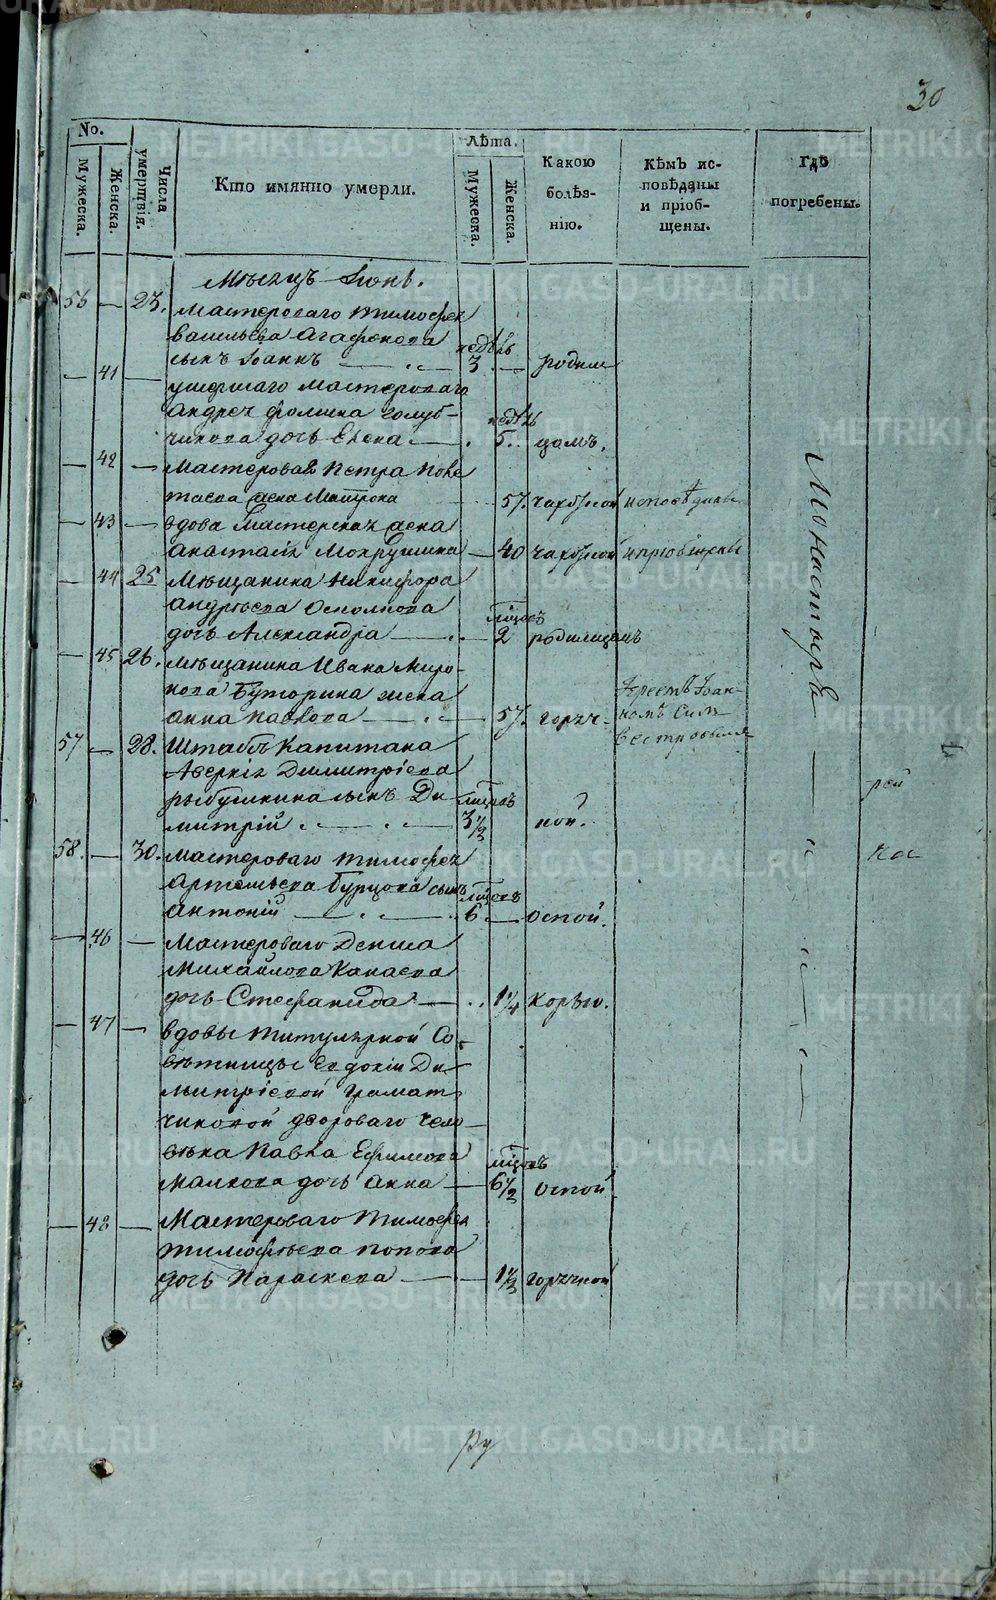 30
No.
Мужеска.
Женска.
Числа умертвія.
Кто имянно умерли.
Лѣта.
Мужеска.
Женска.
Какою болѣз-нію.
Кѣмъ ис-повѣданы и пріоб-щены.
Гдѣ погребены.
Мѣсяцъ Іюнь.
56 — 23. Мастероваго Тимофея
Васильева Агафонова
сынъ Іоаннъ — недѣль 3 — родим
— 41 — умершаго мастероваго
Андрея Фомина Голуб-
чикова дочь Елена — недѣль 5. цомъ.
— 42 — Мастероваго Петра
жена Матрона 57. чахоткой исповѣданы
— 43 — вдова Мастерская жена
Анастасія Мокрушина — 40 чахоткой и пріобщены
44 25 Мѣщанина Никифора
Андреева
дочь Александра — мѣсяцъ 2 родимцемъ
45 26. Мѣщанина Ивана Миро-
нова Буторина жена
Анна Павлова — 57. горяч- Іереемъ Іоан-номъ Силь-вестровымъ
57 — 28. Штабъ Капитана
Аверкія Димитріева
Рыбушкина сынъ Ди-
митрій — мѣсяцъ 3 1/2 ной.
58. — 30. Мастероваго Тимофея
Артемьева Бурцова сынъ
Антоній — мѣсяцовъ 6 — оспой.
— 46 — Мастероваго Дениса
Михайлова Канаева
дочь Стефанида — 1 1/4 корью.
— 47 — вдовы титулярной Со-
вѣтницы Евдокіи Ди-
митріевой Грамат-
чиковой двороваго чело-
вѣка Павла Ефимова
Малкова дочь Анна — мѣсяцовъ 6 1/2 оспой
— 48 — Мастероваго Тимофея
Тимофѣева Попова
дочь Параскева — 1 1/2 горячкой
Монастырѣ
рей
ка
Ру
METRIKI.GASO-URAL.RU